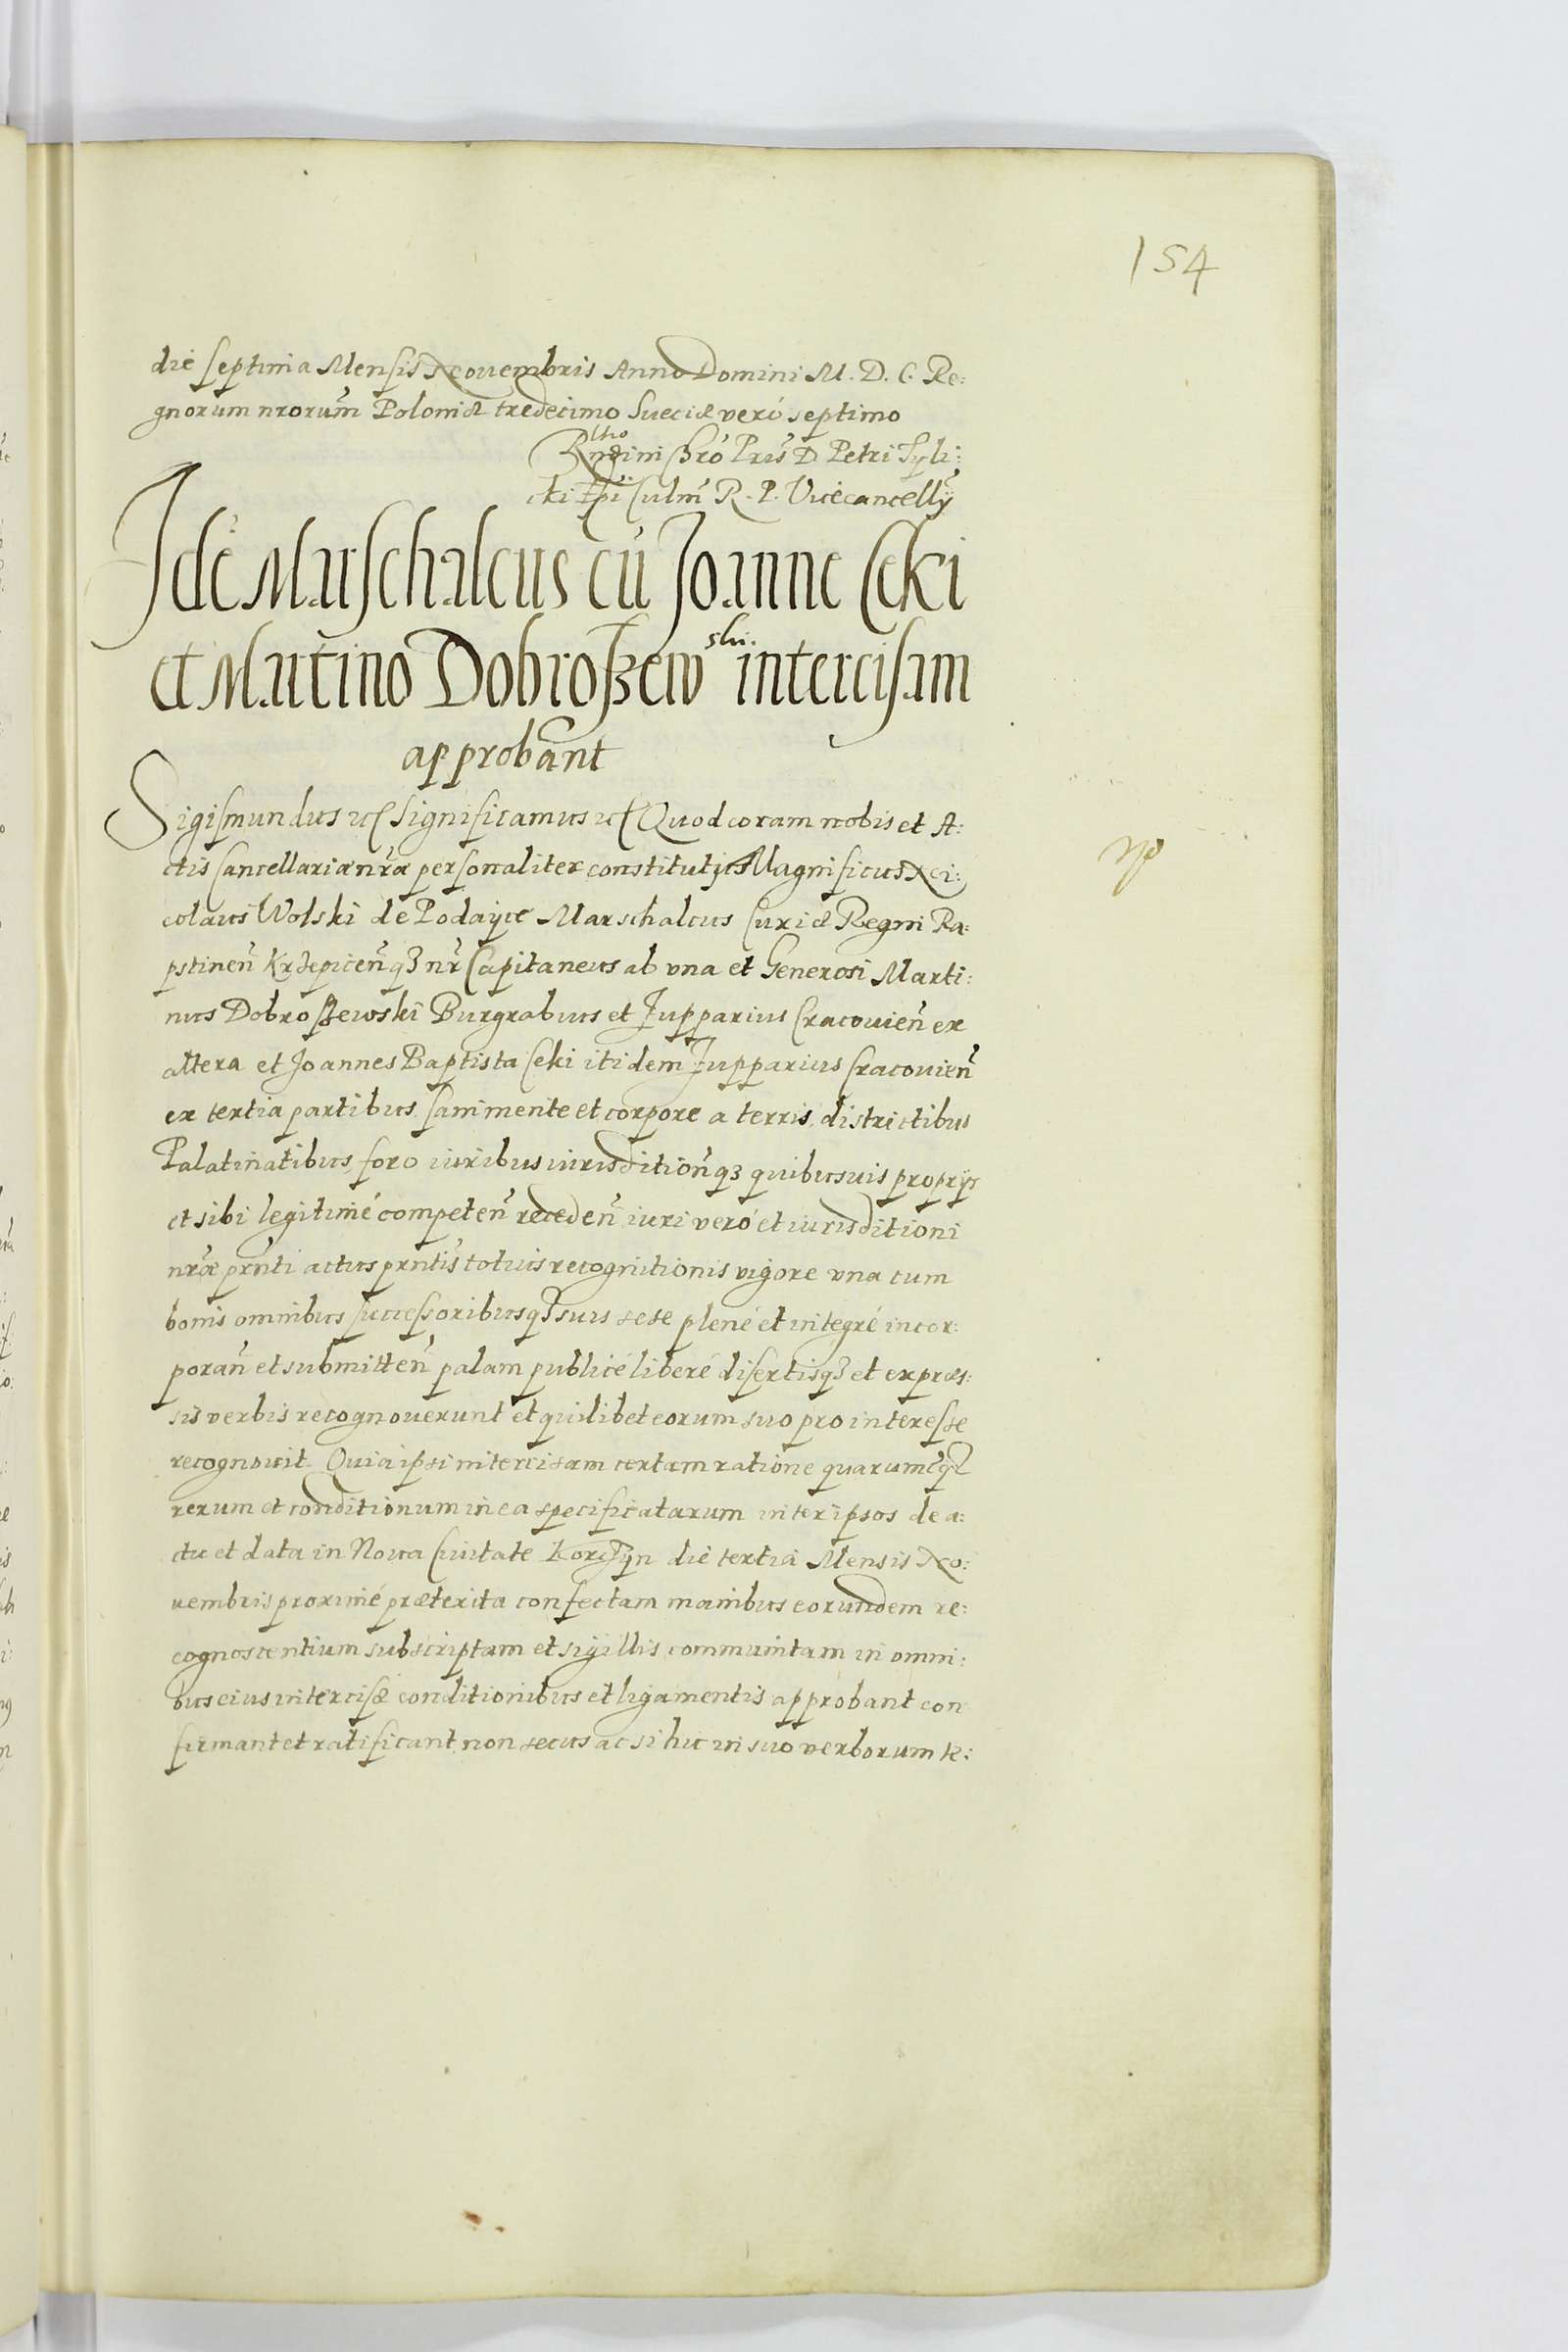 154
die septima Mensis Nouembris Anno Domini M. D. C. Re:
gnorum nrorum̃ Poloniæ tredecimo Sueciæ veró septimo
D. Petri Tyli:
cki Epi Culm̃ R. P. Vicecancellÿ
Idẽ Marschalcus cũ Joanne Ceki
et Martino Dobroszewski. intercisam
approbant
Sigismundus etc Significamus etc Quod coram nobis et A:
ctis Cancellariæ nr̃æ personaliter constitutis Magnificus Ni:
colaus Wolski de Podayce Marschalcus Curiæ Regni Ra:
pstinen̄ Krzepicen̄qȝ nr̄ Capitaneus ab vna et Generosi Marti:
nus Dobroszewski Burgrabius et Zupparius Cracouien̄ ex
altera et Joannes Baptista Ceki itidem Zupparius Cracouien̄
ex tertia partibus, sani mente et corpore a terris, districtibus
Palatinatibus, foro iuribus iurisdition̄qȝ quibusuis proprijs
et sibi legitimé competen̄ receden̄ iuri veró et iurisditioni
nr̃æ pr̃nti actus pr̃ntis totuis recognitionis vigore vna cum
bonis omnibus successoribusqȝ suis sese plené et integré incor:
poran̄ et submitten̄ palam publicé liberé disertisqȝ et expres:
sis verbis recognouerunt et quilibet eorum suo pro interesse
recognouit. Quia ipsi intercisam certam ratione quarumcqȝ
rerum et conditionum in ea specificatarum inter ipsos de a:
ctu et data in Noua Ciuitate Korczyn die tertia Mensis No:
uembris proximé præterita confectam manibus eorundem re:
cognoscentium subscriptam et sigillis communitam in omni:
bus eius intercisæ conditionibus et ligamentis approbant con
firmant et ratificant, non secus ac si hic in suo verborum te: